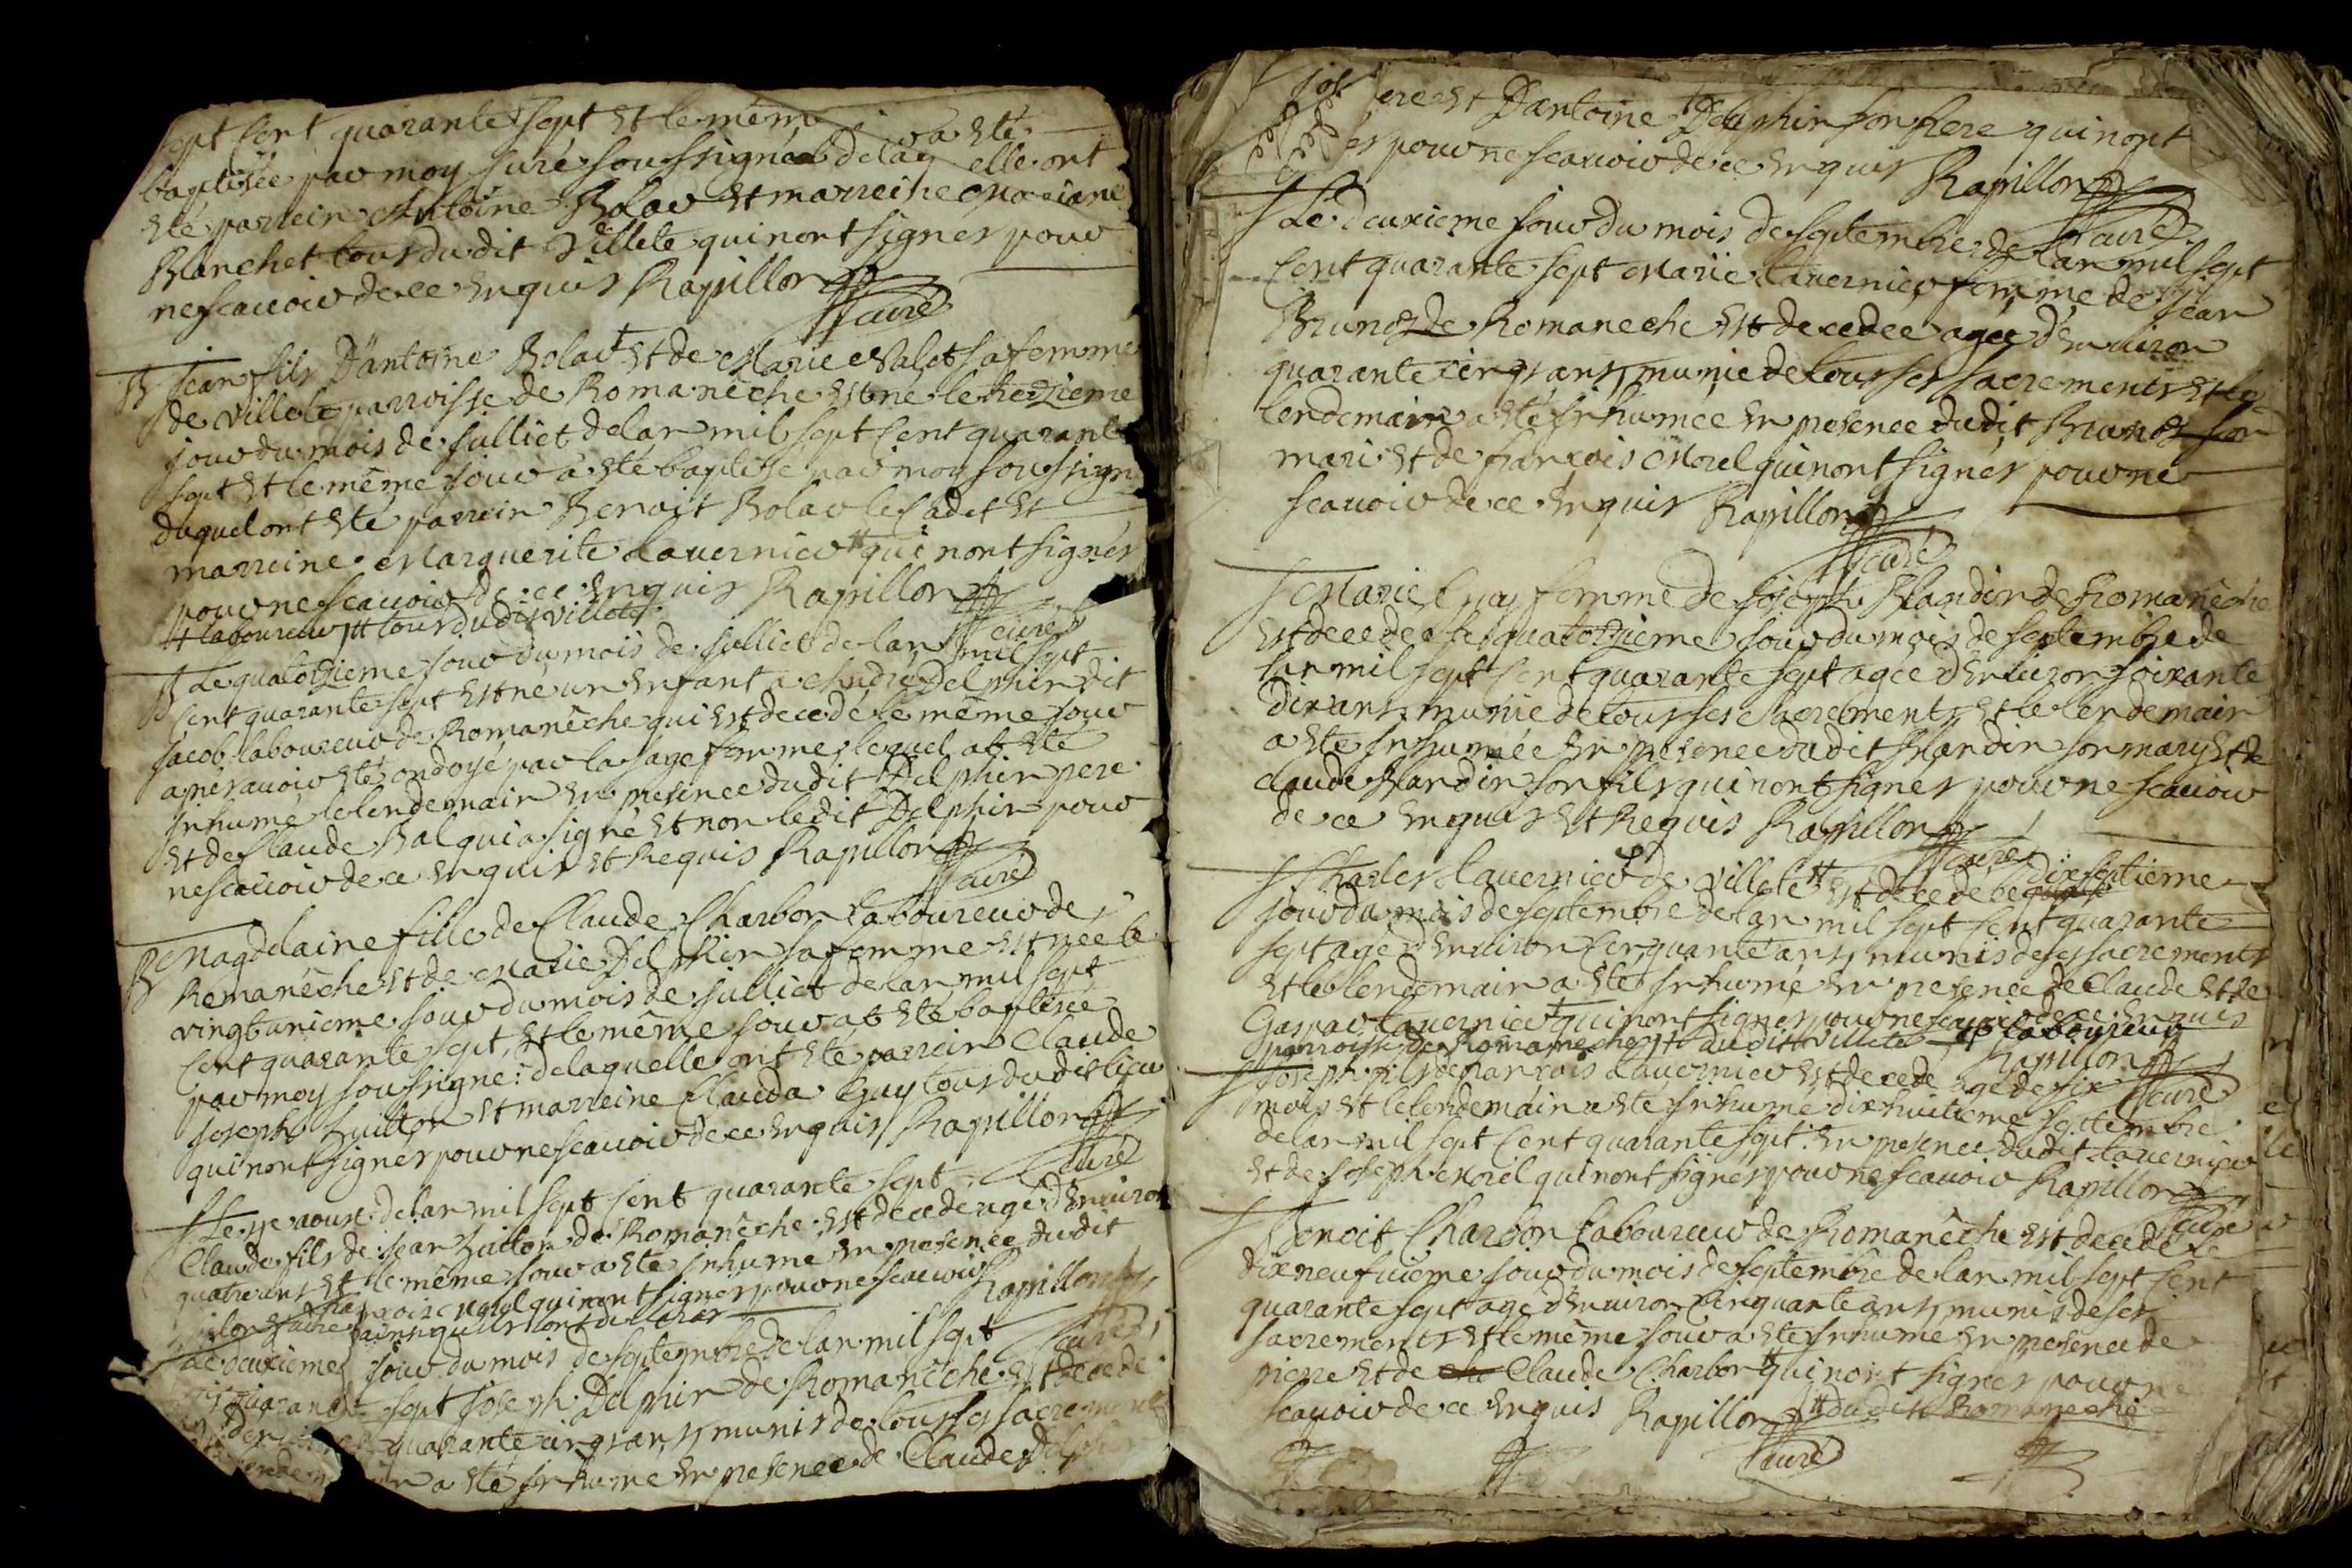 sept Cent quarante sept Et le mem
baptisée par moy Curé soussigné delaq elle ont
Eté parrein Antoine Bolac Et marreine Mariane
Blanchet tous dudit Villete qui nont signes pour
ne scavoir de ce Enquis Rapillon
Curé
B Jean fils D'antoine Bolac Et de Marie Valet sa femme
de Villete parroisse de Romanêche Est né le trezieme
jour du mois de Julliet de lan mil sept Cent quarante
sept Et le même jour a Eté baptisé par moy soussigne
duquel ont Eté parrein Benoit Bolac le Cadet Et
marreine Marguerite Tavernier # qui nont signés
pour ne scavoir de ce Enquis Rapillon
# laboureur # tous dudit Villete Curé
B Le quatorzieme jour du mois de Julliet de lan mil sept
Cent quarante sept Est né un Enfant a André Delphin dit
Jacob laboureur de Romanêche qui Est decedé le même jour
apres avoir Eté ondoyé par la sage femme lequel at Eté
Inhumé le lendemain En presence dudit Delphin pere
Et de Claude Bal qui a signé Et non ledit Delphin pour
ne scavoir de ce Enquis Et Requis Rapillon
Curé
B Magdelaine fille de Claude Charbon laboureur de
Romanêche Et de Marie Delphin sa femme Est née le
vingtunieme jour du mois de Julliet de lan mil sept
Cent quarante sept, Et le même jour at Eté baptisée
par moy soussigné: delaquelle ont Eté parrein Claude
Joseph Huitton Et marreine Clauda Guy tous dudit lieu
qui nont signés pour ne scavoir de ce Enquis Rapillon
Curé
Le aoust de lan mil sept Cent quarante sept
Claude fils de Jean Huitton de Romanêche Est decedé agé d'Environ
quatre ans Et le même jour a Eté Inhumé En presence dudit
Morel qui nont signés pour ne scavoir Rapillon
ainsi qu'ils ont declaré Curé
Le deuxieme jour du mois de septembre de lan mil sept
quarante sept Joseph Delphin de Romanêche Est decedé
quarante cinq ans, munis de tous ses sacrements
a Eté Inhumé En presence de Claude Delphin
Et D'antoine Delphin son frere qui nont
pour ne scavoir de ce Enquis Rapillon
Curé
Le deuxieme jour du mois de septembre de lan mil sept
Cent quarante sept Marie Tavernier femme de Jean
Brunoz de Romaneche Est decedée agée d'Environ
quarante cinq ans, munie de tous ses sacrements Et le
lendemain a Eté Inhumée En presence dudit Brunoz son
mari Et de françois Morel qui nont signés pour ne
scavoir de ce Enquis Rapillon
Curé
Marie Guy femme de Joseph Blandin de Romanêche
Est decedée le quatorzieme jour du mois de septembre de
lan mil sept Cent quarante sept agée d'Environ soixante
dix ans, munie de tous ses sacrements Et le lendemain
a Eté Inhumée En presence dudit Blandin son mary Et de
Claude Blandin son fils qui nont signes pour ne scavoir
de ce Enquis Et Requis Rapillon
Curé
Charles Tavernier de Villete # Est decedé le dixseptieme
jour du mois de septembre de lan mil sept Cent quarante
sept agé d'Environ Cinquante ans, munis de ses sacrements
Et le lendemain a Eté Inhumé En presence de Claude Et de
Gaspar Tavernier # qui nont signes pour ne scavoir de ce Enquis
# parroisse de Romaneche # dudit Villete laboureur
Rapillon
Joseph fils de françois Tavernier Est decedé agé de six Curé
mois Et le lendemain a Eté Inhumé dixhuitieme septembre
de lan mil sept Cent quarante sept: En presence dudit Tavernier
Et de Joseph Morel qui nont signés pour ne scavoir Rapillon
Curé
Benoit Charbon laboureur de Romanêche Est decedé le
dixneufuieme jour du mois de septembre de lan mil sept Cent
quarante sept agé d'Environ Cinquante ans, munis de ses
sacrements Et le même jour a Eté Inhumé En presence de
pierre Et de Claude Charbon # qui nont signes pour ne
scavoir de ce Enquis Rapillon # dudit Romaneche
Curé